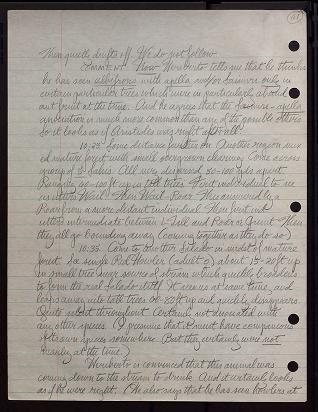 then quickly drifts off. We do not follow
COMMENT: Now Wimberto tells me that he thinks
he has seen albifrons with apella and/or Saimiri only in
certain particular trees which were in particularly abund-
ant fruit at the time. And he agrees that the Saimiri-apella
association is much more common than any of the possible others
So it looks as if Aristides was right after all.
10:25 Some distance further on. Another region mix-
ed mature forest with small overgrown clearing. Come across
group of All are dispersed 50-100 yds apart
Running 60-100 ft up in trees. First individual to see
us utters Wail. Then Wail-Roar. Then answered by a
Roar from a more distant individual. Then first ind.
utters intermediate between Trill and Roar or Grunt. Then
they all go bounding away (coming together as they do so)
10:35 Come to another Salado in midst of mature
forest. See single Red Howler (adult ♂) about 15-20 ft up
in small tree near source of stream which quickly broadens
to form the real Salado itself. It sees us at same time, and
leaps away into tall trees 60-80 ft up and quickly disappears.
Quite silent throughout. Certainly not associated with
any other species. (I presume that it must have companions
of its own species somewhere. But they certainly were not
nearby at the time.)
Wimberto is convinced that this animal was
coming down to the stream to drink. And it certainly looks
as if he were right. (He also says that he has seen howlers at